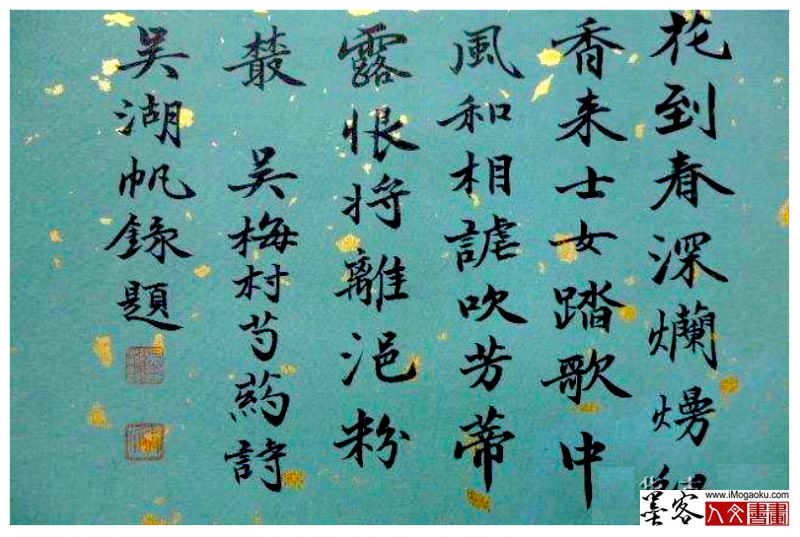 花到春深爛熳
香来士女踏歌中
風和相謔吹芳蒂
露恨将離浥粉
叢 吳梅村芍葯詩
吳湖帆錄題
墨客
www.iMogaoku.com
人文書畫